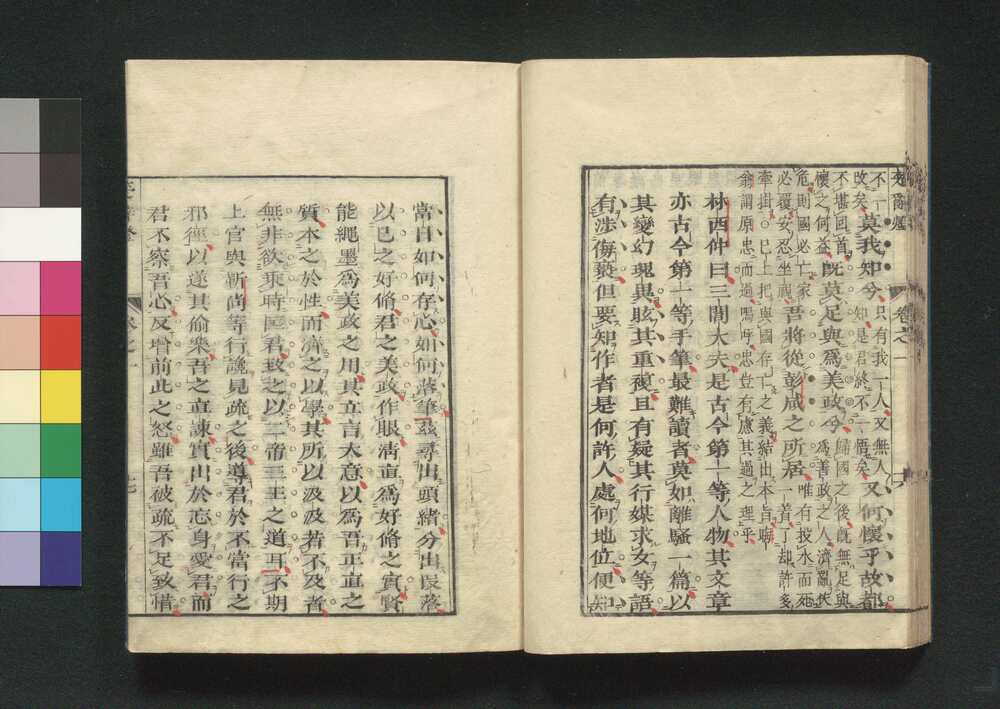 楚辭燈 卷之一
不一
改矣
莫我知兮
只有我一人又無人
知是君終不一悟矣
又何懷乎故都
不堪回首
懷之何益
既莫足與爲美政兮
歸國之後既無足與
爲善政之人濟亂扶
危則國必亡家
必覆安忍坐視
吾將從彭咸之所居
唯有投水而死
一着了却許多
牽掛。已上把與國存亡之義結出本旨晦
翁謂原忠而過嗚呼忠豈有慮其過之理乎
林西仲曰三閭大夫是古今第一等人物其文章
亦古今第一等手筆最難讀者莫如離騷一篇以
其變幻瑰異眩其重複且有疑其行媒求女等語
有涉傷褻但要知作者是何許人處何地位便知
當日如何存心如何落筆玆尋出頭緒分出段落
以已之好脩君之美政作眼清直爲好脩之實賢
能繩墨爲美政之用其立言大意以爲吾正直之
質本之於性而濟之以學其所以汲汲若不及者
無非欲乘時匡君致之以二帝三王之道耳不期
上官與靳尚等行讒見疏之後導君於不當行之
邪徑以遂其偷樂吾之直諫實出於忘身愛君而
君不察吾心反增前此之怒雖吾被疏不足致惜